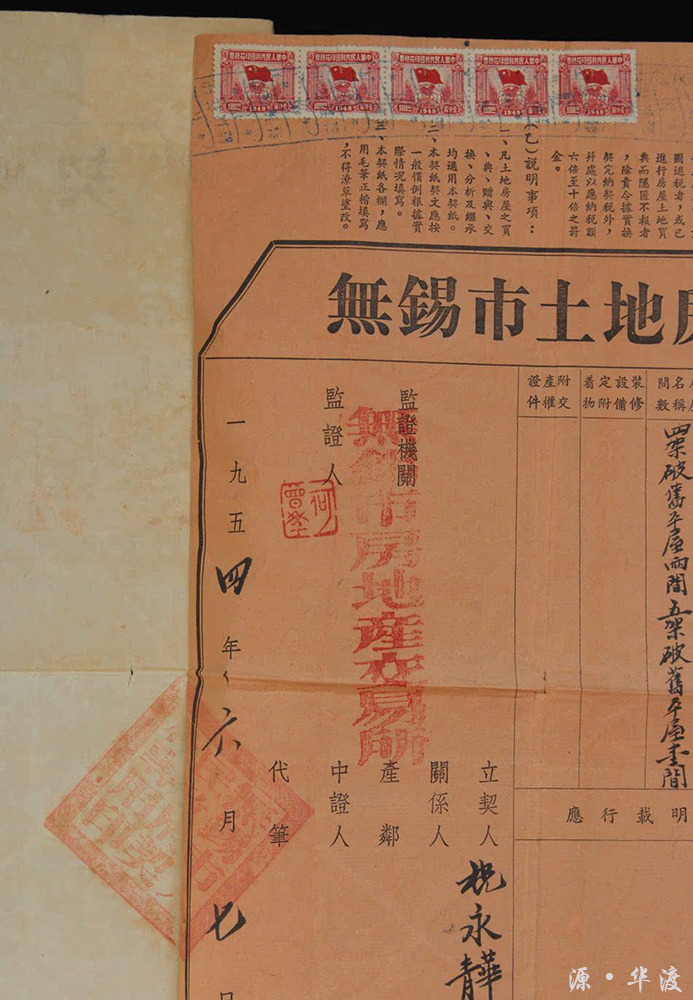 中華人民共和國印花稅票
1949
(乙)說明事項：
一、凡土地房屋之買
、典、贈與、交
換、分析及繼承
均適用本契紙。
二、本契紙契文應按
一般慣例根據實
際情況填寫。
三、本契紙各欄，應
用毛筆正楷填寫
，不得潦草塗改。
圖逃稅者，或已
進行房屋土地買
典而隱匿不報者
，除責令據實換
契完納契稅外，
幷處以應納稅額
六倍至十倍之罸
金。
無錫市土地房
名稱
間數
裝修
設備
定附
着物
附交
產權
證件
四架破舊平屋兩間五架破舊平屋壹間
應行載明
監證機關
無錫市房地產交易所
監證人
立契人
祝永華
青
關係人
產鄰
中證人
代筆
一九五四年六月七日
源·华渡